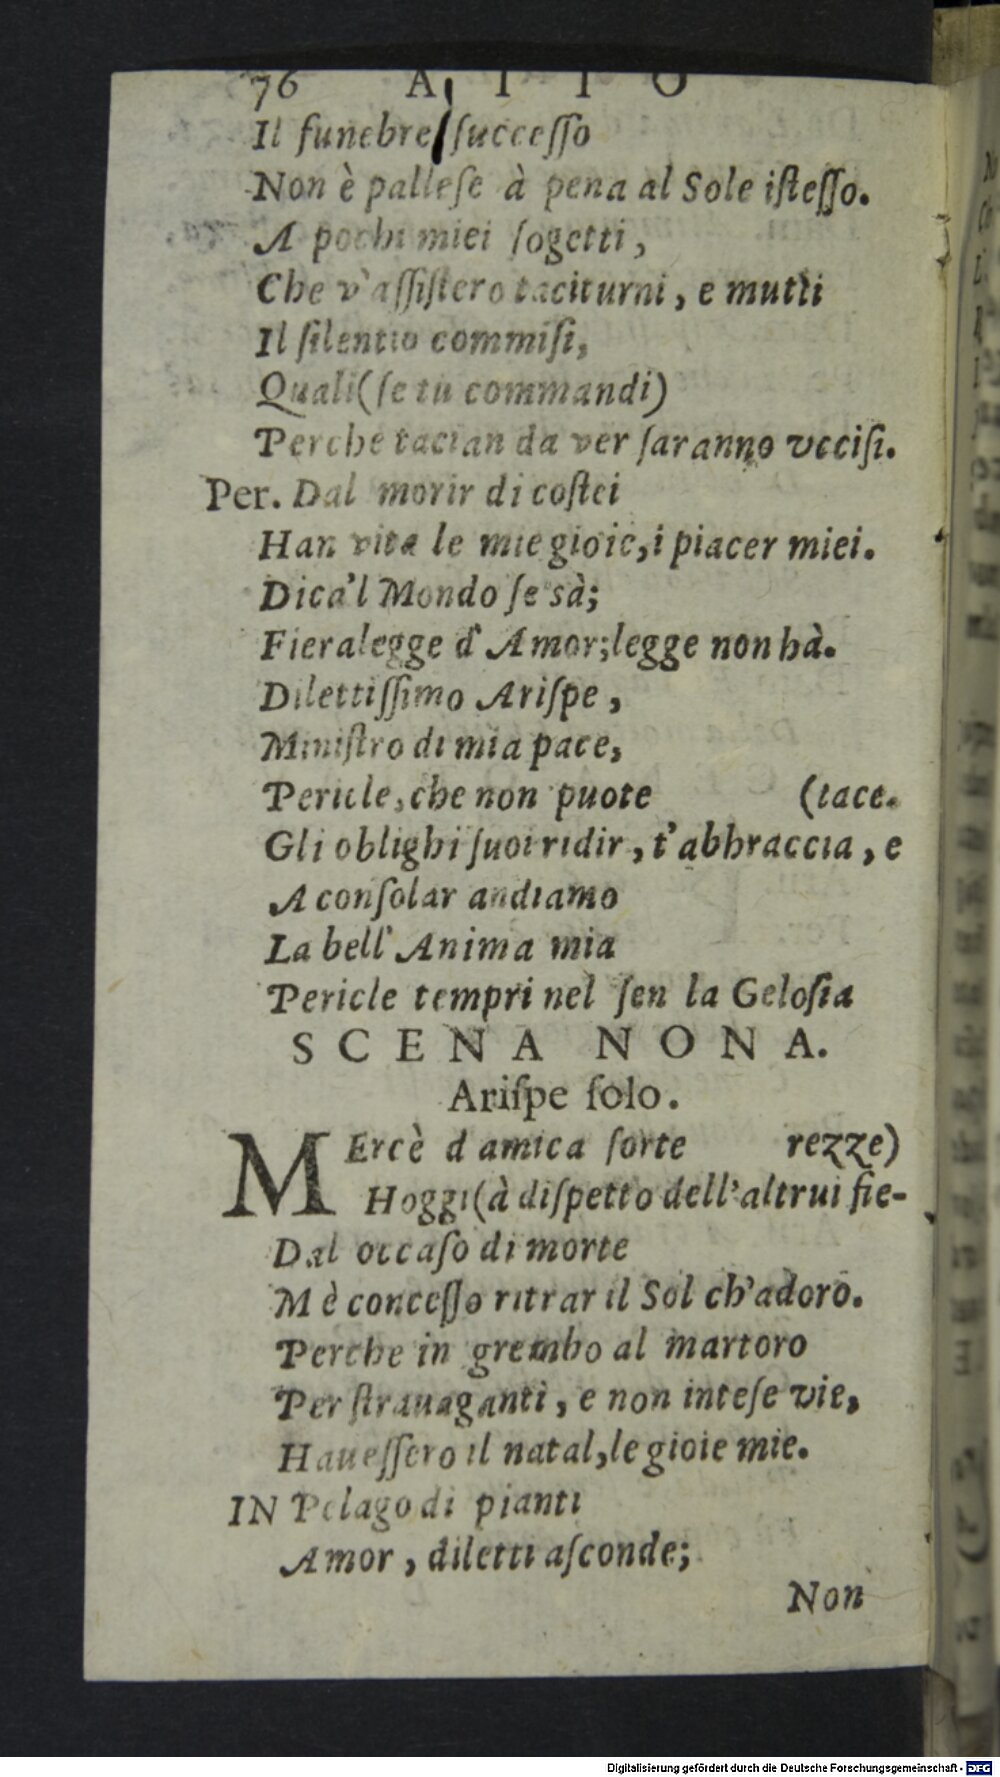 76 ATTO
Il funebre ſucceſſo
Non è palleſe à pena al Sole iſteſſo.
A pochi miei ſogetti,
Che v'aſſiſtero taciturni, e mutti
Il ſilentio commiſi,
Quali (ſe tu commandi)
Perche tacian da ver ſaranno vcciſi.
Per. Dal morir di coſtei
Han vita le mie gioie, i piacer miei.
Dica'l Mondo ſe sà;
Fiera legge d'Amor; legge non hà.
Dilettiſſimo Ariſpe,
Miniſtro di mia pace,
Pericle, che non puote (tace.
Gli oblighi ſuoi ridir, t'abbraccia, e
A conſolar andiamo
La bell'Anima mia
Pericle tempri nel ſen la Geloſia
SCENA NONA.
Ariſpe ſolo.
MErcè d amica ſorte rezze)
Hoggi (à diſpetto dell'altrui fie-
Dal occaſo di morte
M è conceſſo ritrar il Sol ch'adoro.
Perche in grembo al martoro
Per ſtrauaganti, e non inteſe vie,
Haueſſero il natal, le gioie mie.
IN Pelago di pianti
Amor, diletti aſconde;
Non
Digitalisierung gefördert durch die Deutsche Forschungsgemeinschaft - DFG